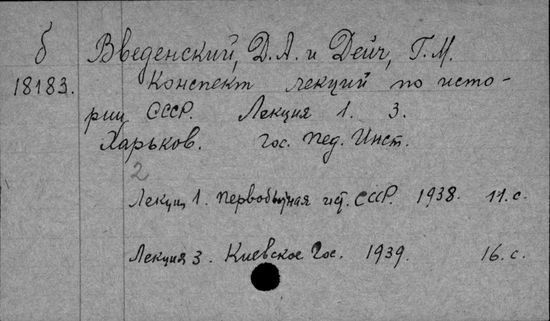 б Введенский, Д.А. и Дейч, Г.М.
18183. Конспект лекций по исто-
рии СССР. Лекция 1. 3.
Харьков. Гос. Пед. Инст.
2
Лекция 1. Первобытная ист. СССР. 1938. 11. с.
Лекция 3. Киевское Гос. 1939. 16. с.